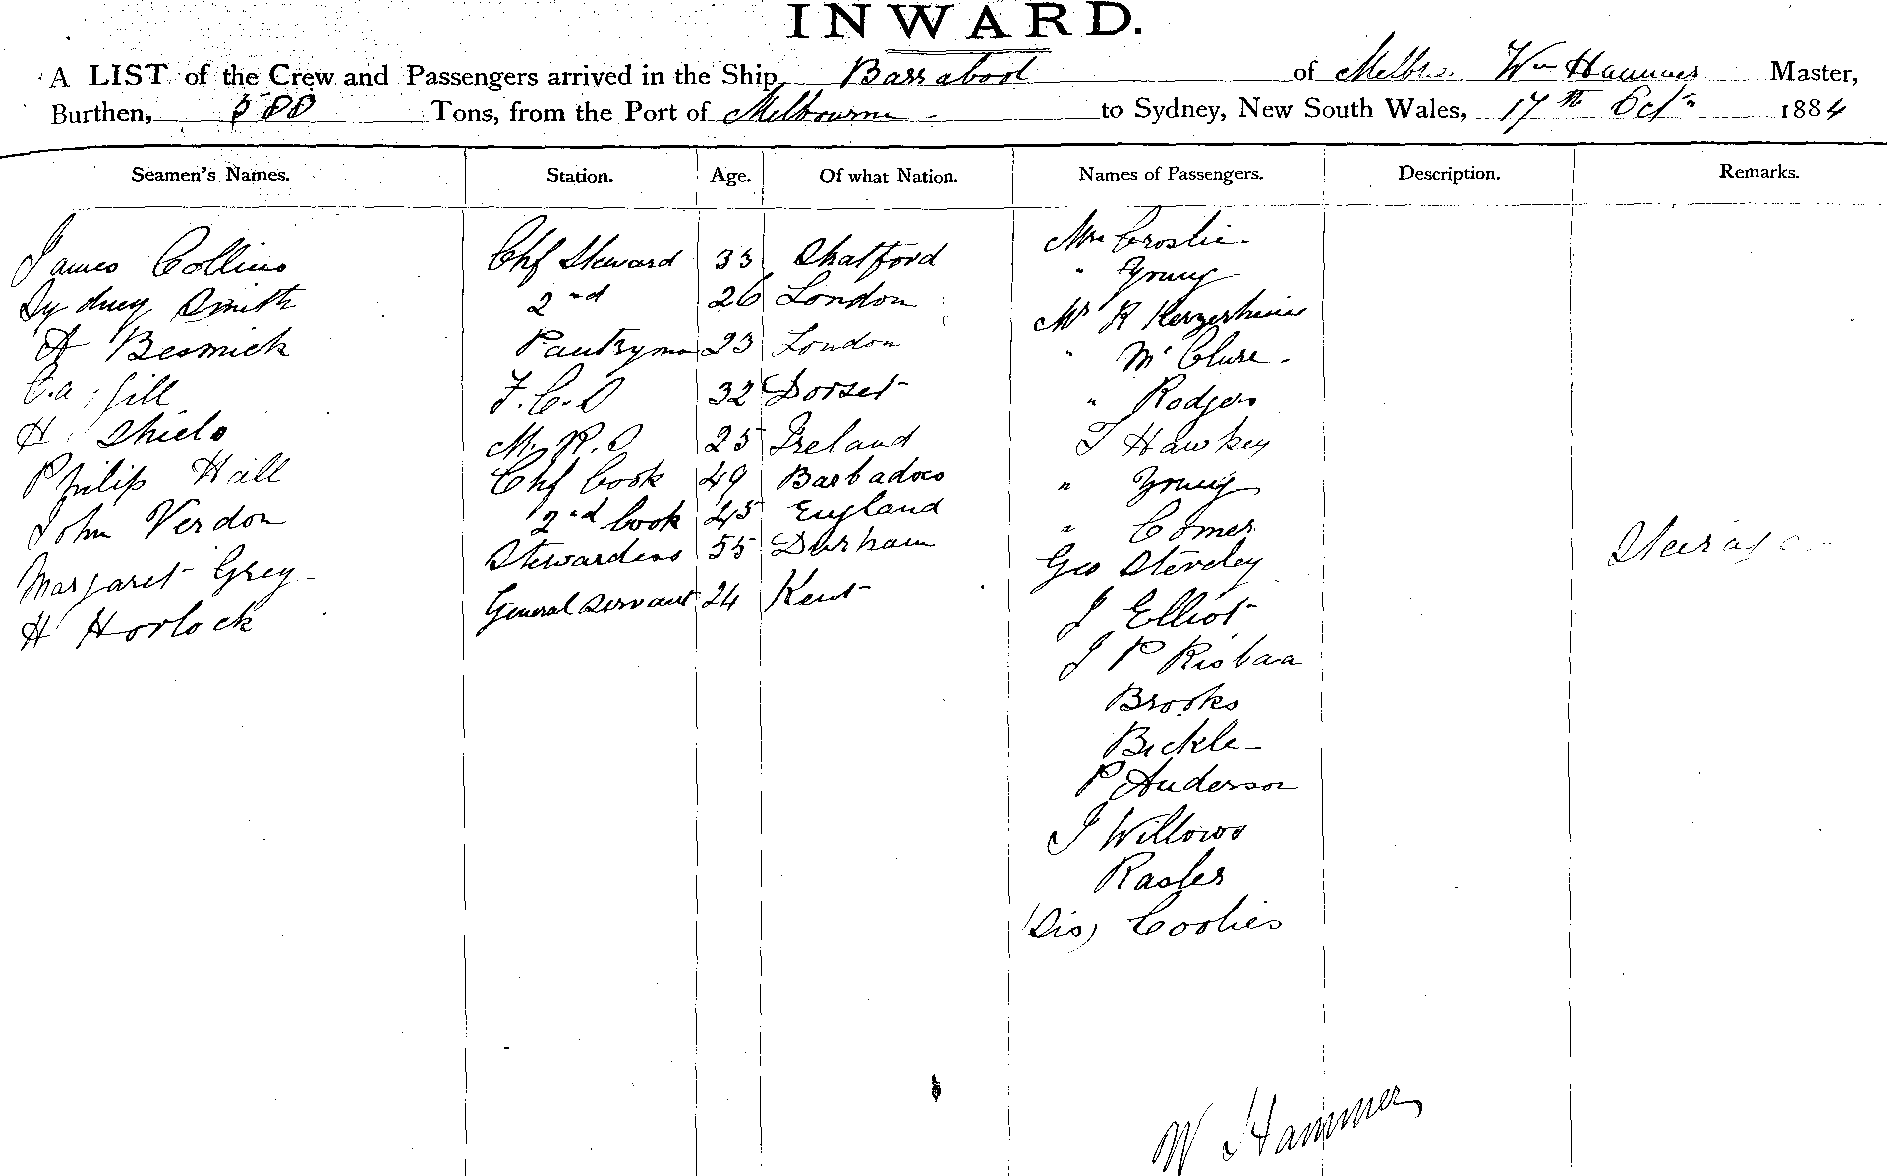 INWARD.
A LIST of the Crew and Passengers arrived in the Ship Barrabool of Melbe. Wm Hammer Master,
Burthen, 500 Tons, from the Port of Melbourne to Sydney, New South Wales, 17th Octr 1884
Seamen's Names. Station. Age. Of what Nation. Names of Passengers. Description. Remarks.
James Collins Chf Steward 33 Shatford Mrs Crosbie
Sydney Smith 2nd 26 London " Young
A Besmick Pantryman 23 London Mr R
C.A. Gill F.C.S 32 Dorset " McClure
H Shiels M.R.S 25 Ireland " Rodgers
Philip Hall Chf Cook 49 Barbadoes T Hawkey
John Verdon 2nd Cook 45 England " Young
Margaret Grey Stewardess 55 Durham " Comer
H Horlock General Servant 24 Kent Geo Steveley Steirage
J Elliot
J P
Brooks
Bickle
P Anderson
J Willows
Rasler
(Dis) Coolies
W Hammer